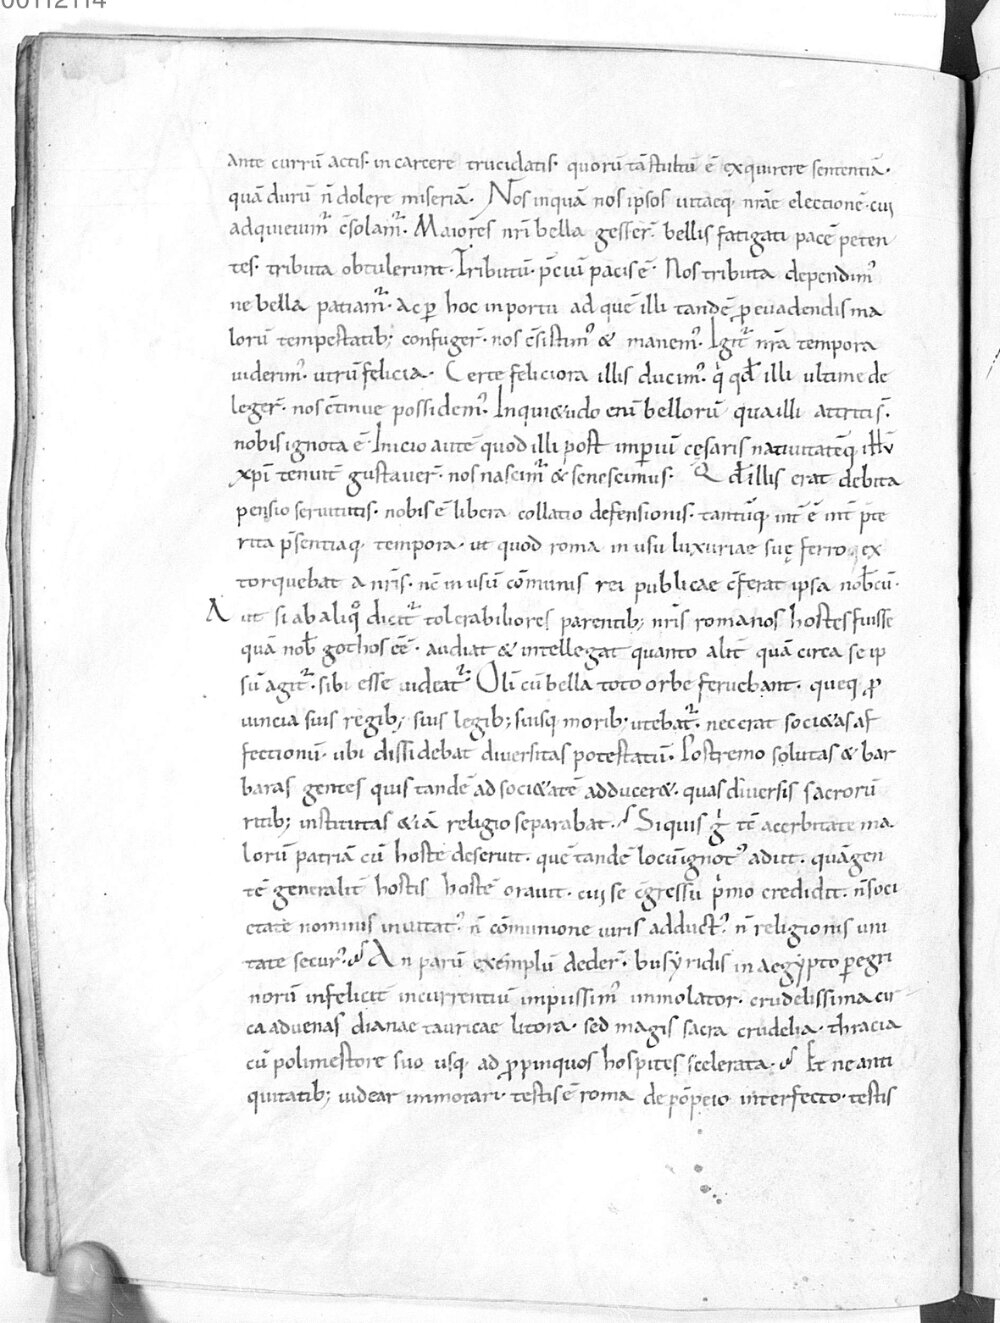 00112114
ante currū actis· in carcere trucidatis· quorū tā stultū ē exquirere sententiā·
quā durū n̄ dolere miseriā· Nos inquā nos ipsos uitaeq· nr̄ae electionē· cui
adquieuim᷒ c̄solam᷒· Maiores nr̄i bella gesser̄· bellis fatigati pacē peten
tes· tributa obtulerunt· Tributū· p̄ciū pacis ē· Nos tributa dependim᷒
ne bella patiam᷒· ac ꝑ hoc in portu ad quē illi tandē ꝓ euadendis ma
lorū tempestatib; confuger̄· nos c̄sistim᷒ & manem᷒· Igit᷒ nr̄a tempora
uiderim᷒· utrū felicia· Certe feliciora illis ducim᷒· q̓ qd̄ illi ultime de
leger̄· nos c̄tinue possidem᷒· Inqui&udo eni bellorū qua illi attriti s̄·
nobis ignota ē· Inicio autē quod illi post imperiū cesaris natiuitatēq· ih̄u
xp̄i tenuit̄ gustauer̄· nos nascim᷒ & senescimus· Qd̄ illis erat debita
pensio seruitutis· nobis ē libera collatio defensionis· tantūq· int̄ ē int̄ p̄te
rita p̄sentiaq· tempora· ut quod roma in usu luxuriae suę ferro ex
torquebat a nr̄is· nc̄ in usū cōmunis rei publicae c̄ferat ipsa nob̄cū·
Aut si ab aliq̊ dicit᷒ tolerabiliores parentib; nr̄is romanos hostes fuisse
quā nob̄ gothos eē· audiat & intellegat quanto alit̄ quā circa se ip
sū agit᷒· sibi esse uideat᷒· Oli cū bella toto orbe feruebant· queq· ꝓ
uincia suis regib; suis legib; suisq· morib· utebat᷒· nec erat soci&as af
fectionū· ubi dissidebat diuersitas potestatū· Postremo solutas & bar
baras gentes quis tandē ad soci&atē adducer&· quas diuersis sacrorū
ritib; institutas &iā religio separabat· Siquis g̓ tē acerbitate ma·
lorū patriā cū hoste deseruit· quē tandē locū ignot᷒ adiit· quā gen
tē generalit̄ hostis hostē orauit· cui se c̄gressu p̓mo credidit· n̄ soci
etate nominis inuitat᷒· n̄ cōmunione uiris adduct᷒· n̄ religionis uni
tate secur᷒· An parū exemplū deder̄· busyridis in aegypto ꝑegri
norū infelicit̄ incurrentiū impiissim᷒ immolator· crudelissima cir
ca aduenas dianae tauricae litora· sed magis sacra crudelia· thracia
cū polimestore suo usq· ad ꝓpinquos hospites scelerata· Et ne anti
quitatib; uidear immorari· testis ē roma de pōpeio interfecto· testis